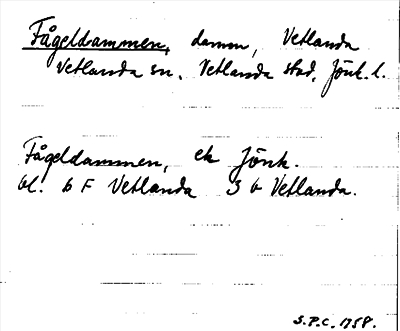 Fågeldammen, damm, Vetlanda
Vetlanda sn, Vetlanda stad, Jönk. l.
Fågeldammen, ek Jönk.
bl. 6 F Vetlanda 3 b Vetlanda.
S.P.C. 1958.